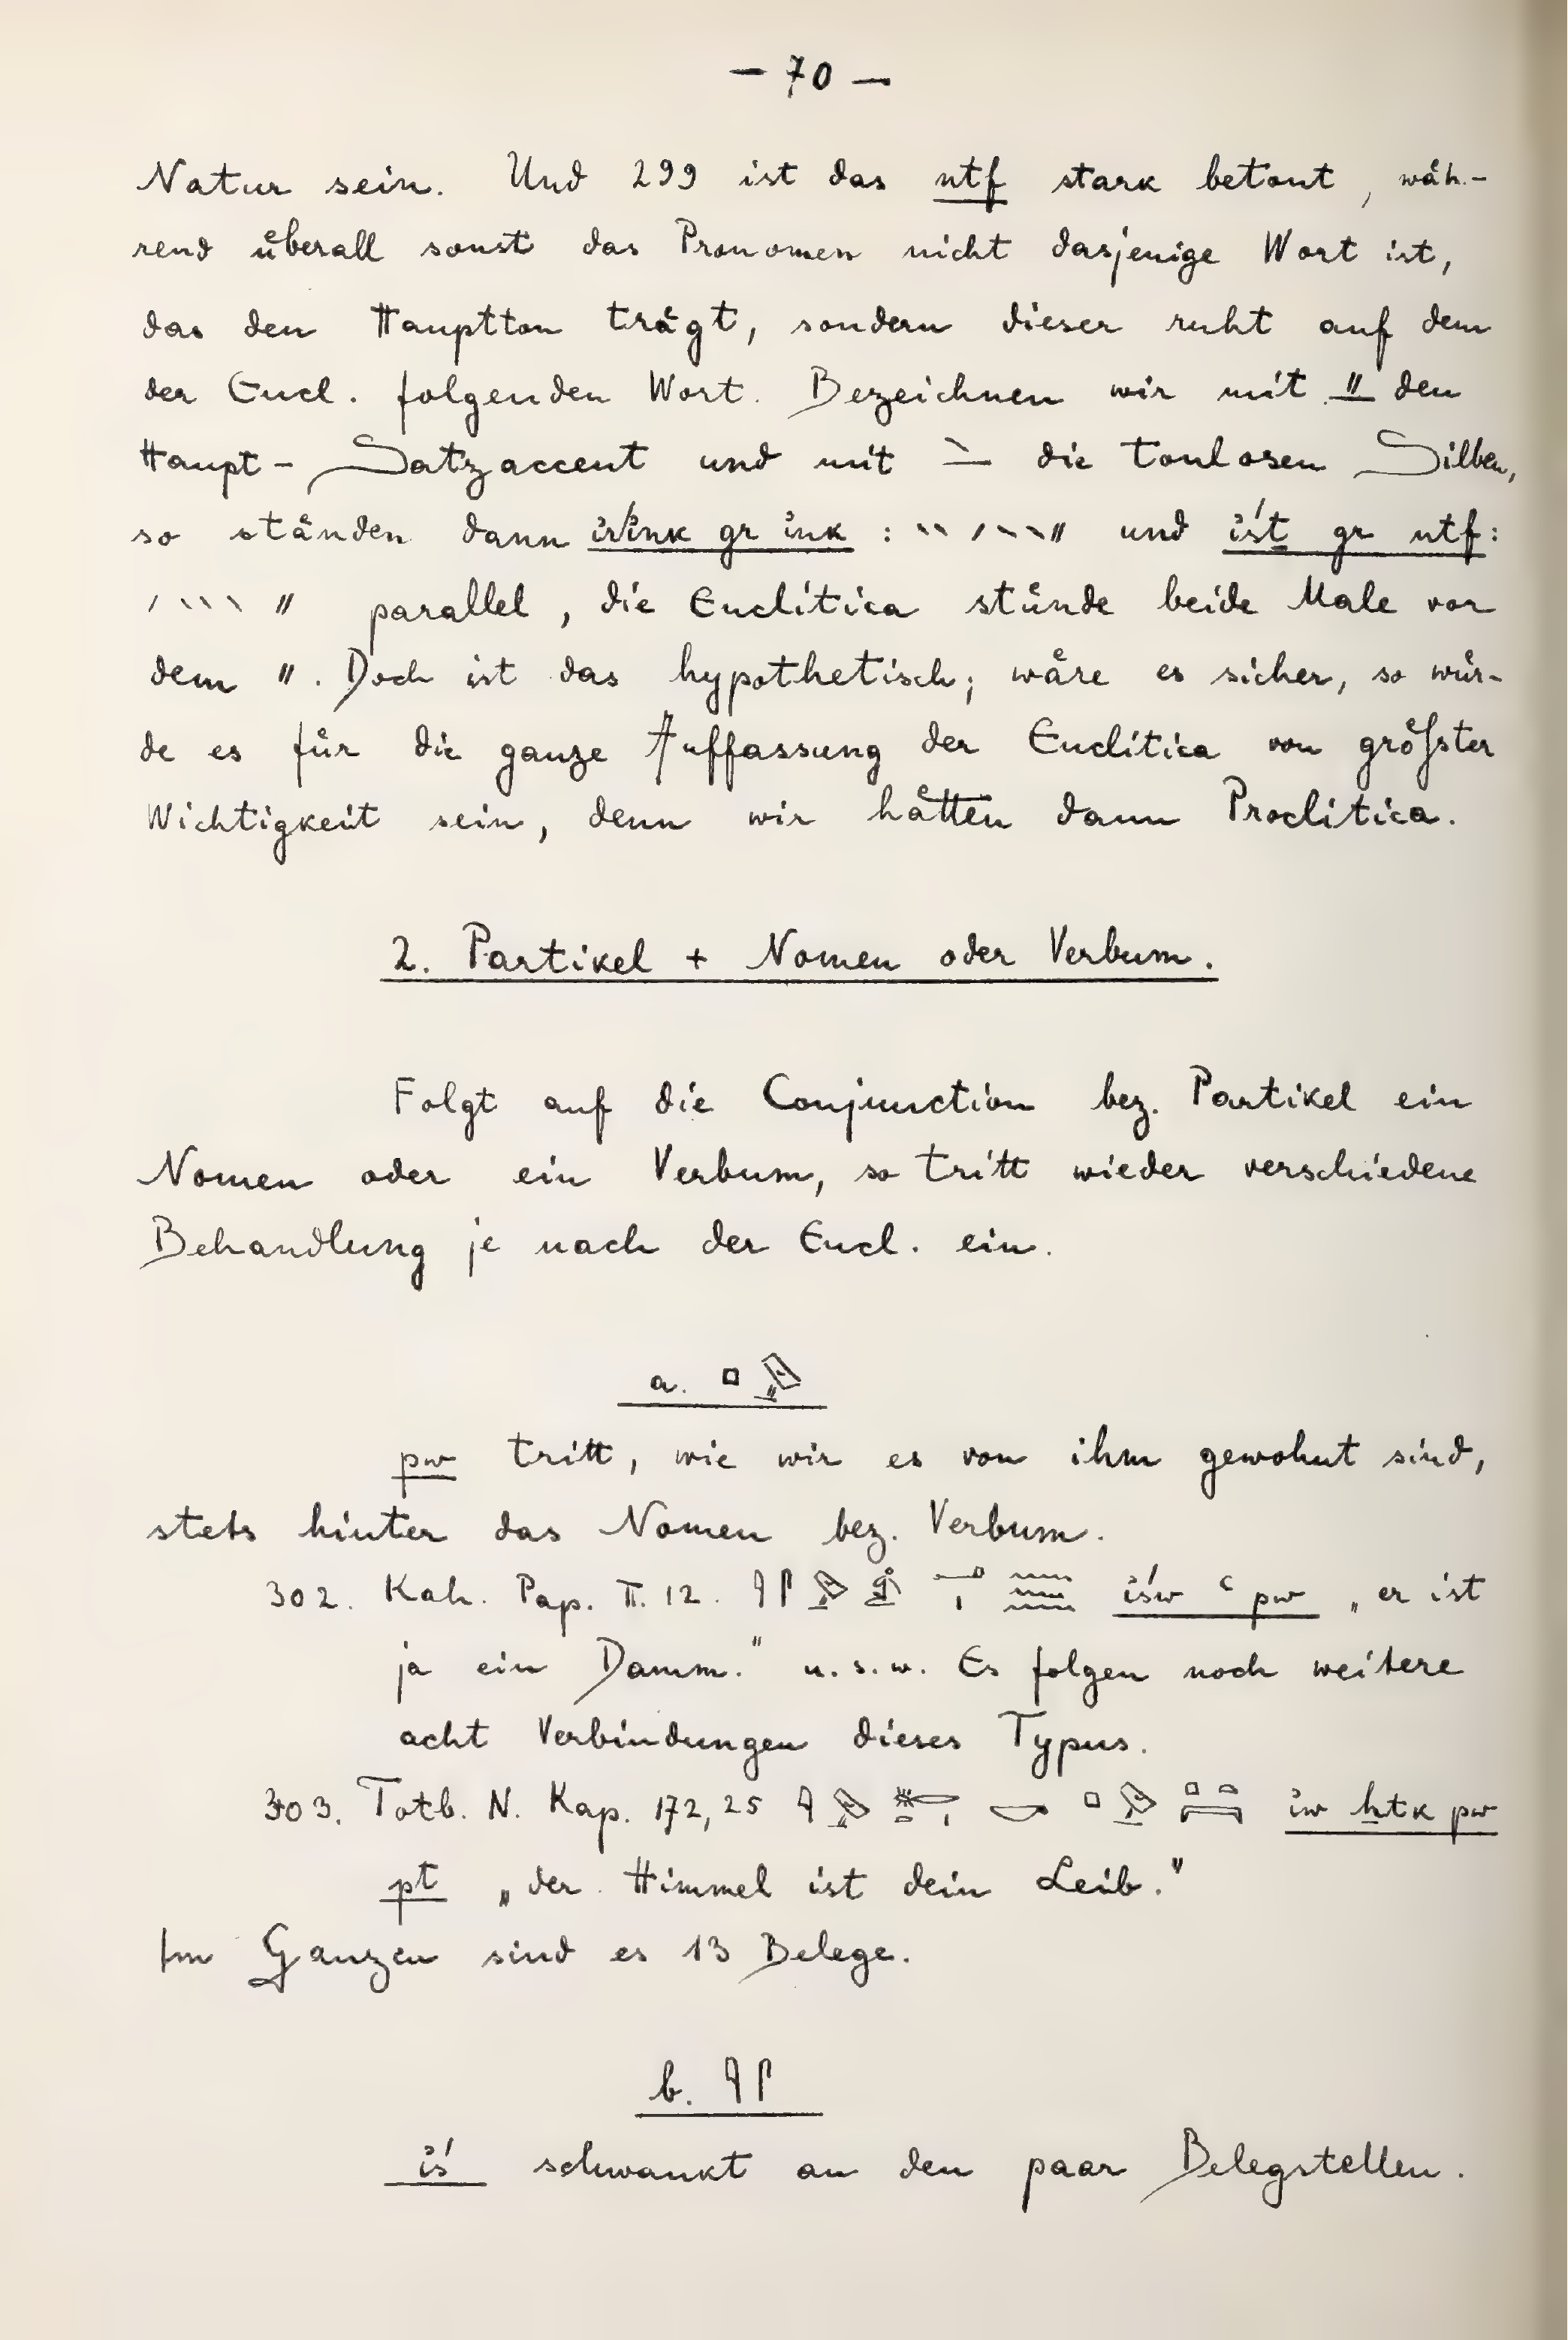 — 70 —
Natur sein. Und 299 ist das ntf stark betont, wäh-
rend überall sonst das Pronomen nicht dasjenige Wort ist,
das den Hauptton trägt, sondern dieser ruht auf dem
der Encl. folgenden Wort. Bezeichnen wir mit " den
Haupt-Satzaccent und mit ` die tonlosen Silben,
so ständen dann gr ı͗nk : `` / `` " und ı͗śt gr ntf :
/ ``` " parallel, die Enclitica stünde beide Male vor
dem ". Doch ist das hypothetisch; wäre es sicher, so wür-
de es für die ganze Auffassung der Enclitica von größter
Wichtigkeit sein, denn wir hätten dann Proclitica.
2. Partikel + Nomen oder Verbum.
Folgt auf die Conjunction bez. Partikel ein
Nomen oder ein Verbum, so tritt wieder verschiedene
Behandlung je nach der Encl. ein.
a. 𓊪𓅱
pw tritt, wie wir es von ihm gewohnt sind,
stets hinter das Nomen bez. Verbum.
302. Kah. Pap. II. 12. 𓇋𓋴 ı͗św ꜥ pw „er ist
ja ein Damm." u.s.w. Es folgen noch weitere
acht Verbindungen dieses Typus.
303. Totb. N. Kap. 172,25 𓇋 𓎡 𓊪 𓊪𓏏𓇯 ı͗w ẖtk pw
pt „der Himmel ist dein Leib."
Im Ganzen sind es 13 Belege.
b. 𓇋𓋴
ı͗ś schwankt an den paar Belegstellen.